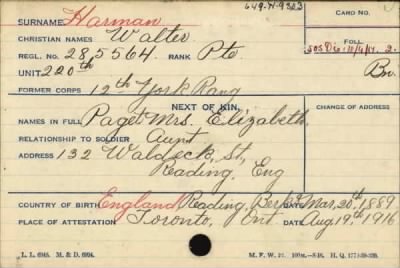 649-H-9323
SURNAME Harman CARD NO.
CHRISTIAN NAMES Walter
REGL. NO. 285564 RANK Pte FOLL.
UNIT 220th
FORMER CORPS 12th York Rang
NEXT OF KIN. CHANGE OF ADDRESS
NAMES IN FULL Paget Mrs. Elizabeth
RELATIONSHIP TO SOLDIER Aunt
ADDRESS 132 Waldeck, St,
Reading, Eng
COUNTRY OF BIRTH England Reading, Berks DATE Mar. 20th, 1889
PLACE OF ATTESTATION Toronto, Ont. DATE Aug 19th, 1916
L. L. 6945. M. & D. 6994. M. F. W. 22. H. Q.